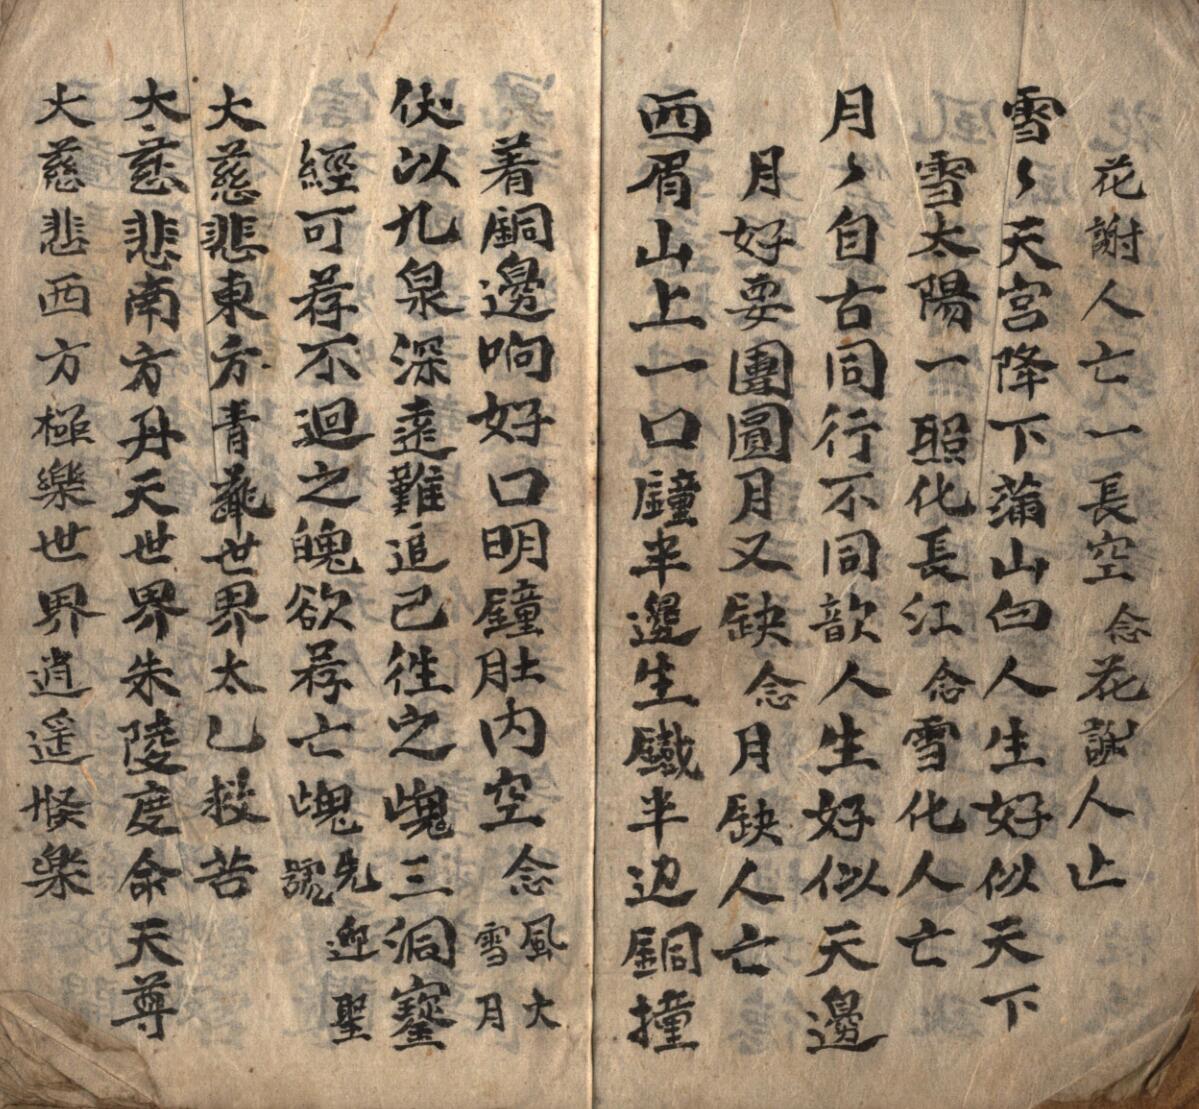 花謝人亡一長空 念花謝人亡
雪々天宮降下蒲山白人生好似天下
雪太陽一照化長江 念雪化人亡
月々自古同行不同歆人生好似天邊
月好要團圓月又缺 念月缺人亡
西眉山上一口鐘半邊生鐵半边銅撞
着銅邊响好口明鐘肚内空 念風大雪月
伏以九泉深遠難追已徃之魂三洞
經可荐不迴之魄欲荐亡魂先號迎聖
大慈悲東方青華世界太乙救苦
大慈悲南方丹天世界朱陵度命天尊
大慈悲西方極樂世界逍遥快樂